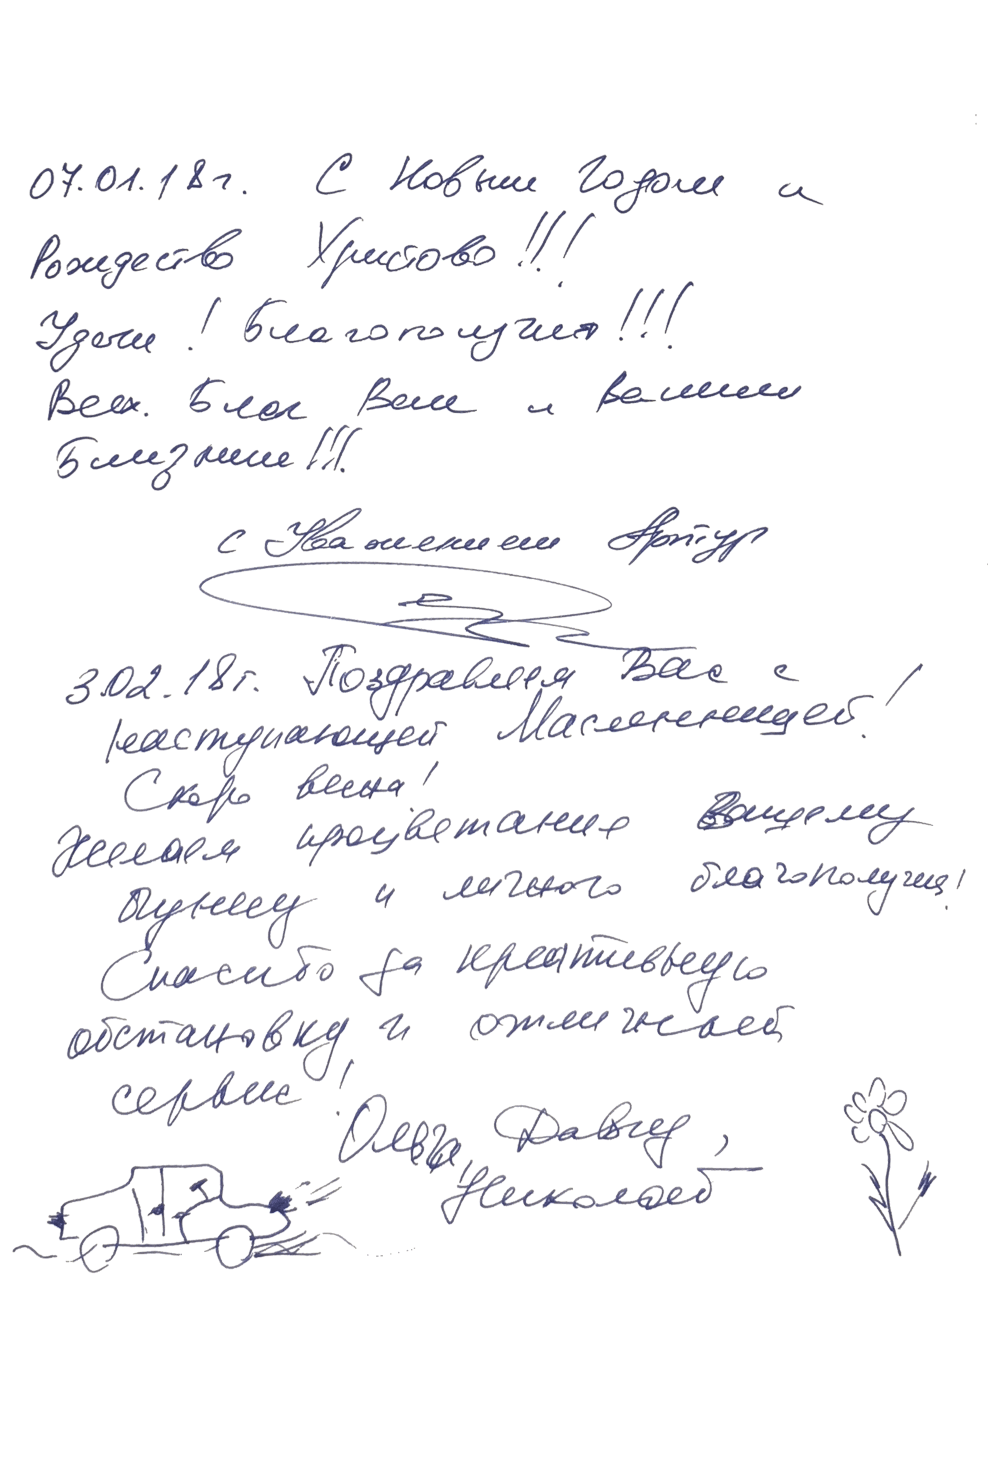 07.01.18г. С Новым Годом и
Рождество Христово!!!
Удачи! Благополучия!!!
Всех Благ Вам и вашим
Близким!!!
с Уважением Артур
3.02.18г. Поздравляем Вас с
наступающей Масленницей!
Скоро весна!
Желаем процветание Вашему
и личного благополучия!
Спасибо за креативную
обстановку и отличный
сервис!
Ольга, Давид,
Николай